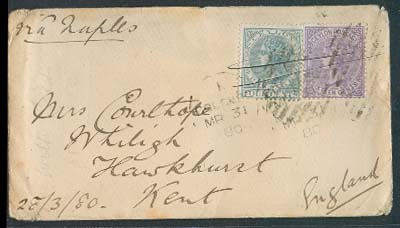 via Naples
MR 31
80
80
Mrs Courthope
Whiligh
Hawkhurst
Kent
England
28/3/80.